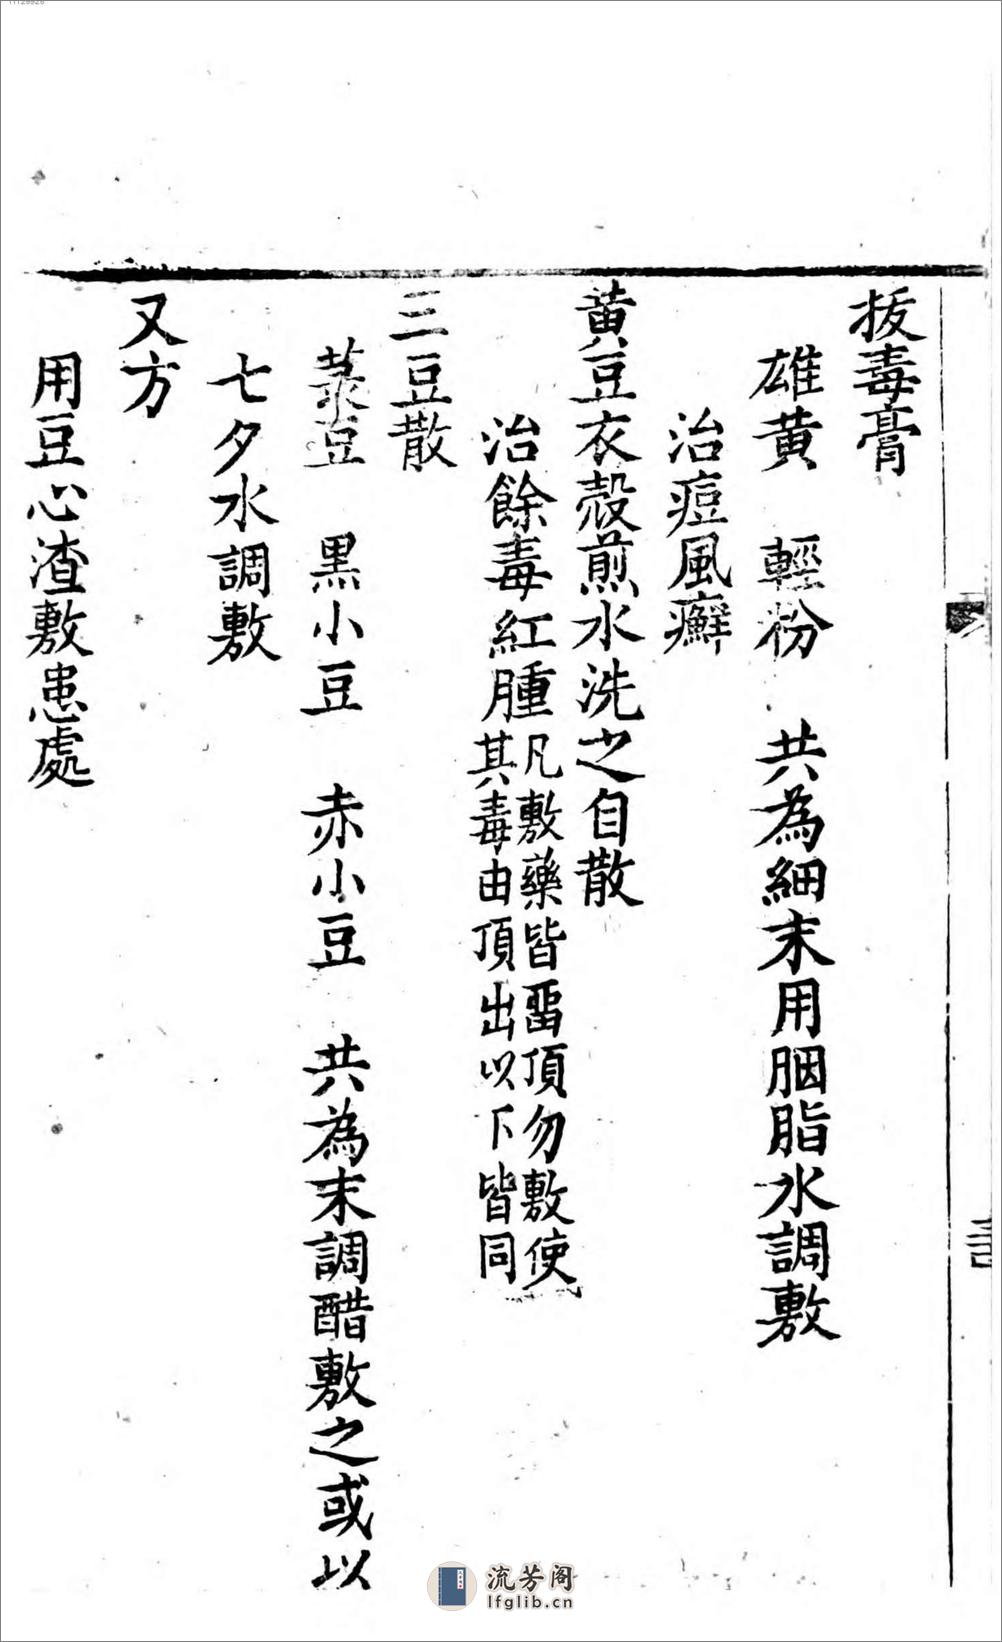 拔毒膏
雄黄　輕粉　共為細末用胭脂水調敷
治痘風癬
黄豆衣殼煎水洗之自散
治餘毒紅腫凡敷藥皆畱頂勿敷使
其毒由頂出以下皆同
三豆散
菉豆　黒小豆　赤小豆　共為末調醋敷之或以
七夕水調敷
又方
用豆心渣敷患處
流芳阁
lfglib.cn